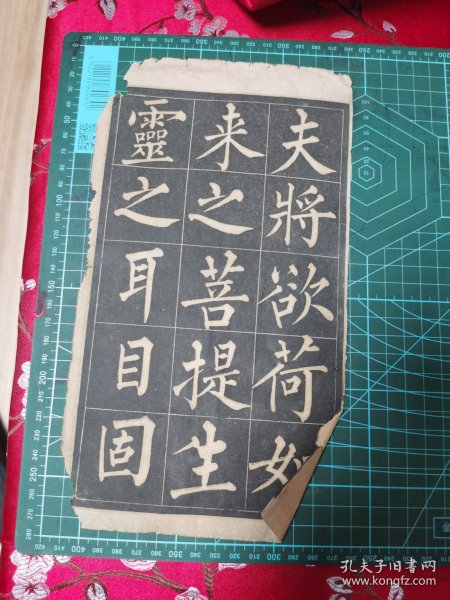 夫將欲荷如
来之菩提生
靈之耳目固
孔夫子旧书网
www.kongfz.com